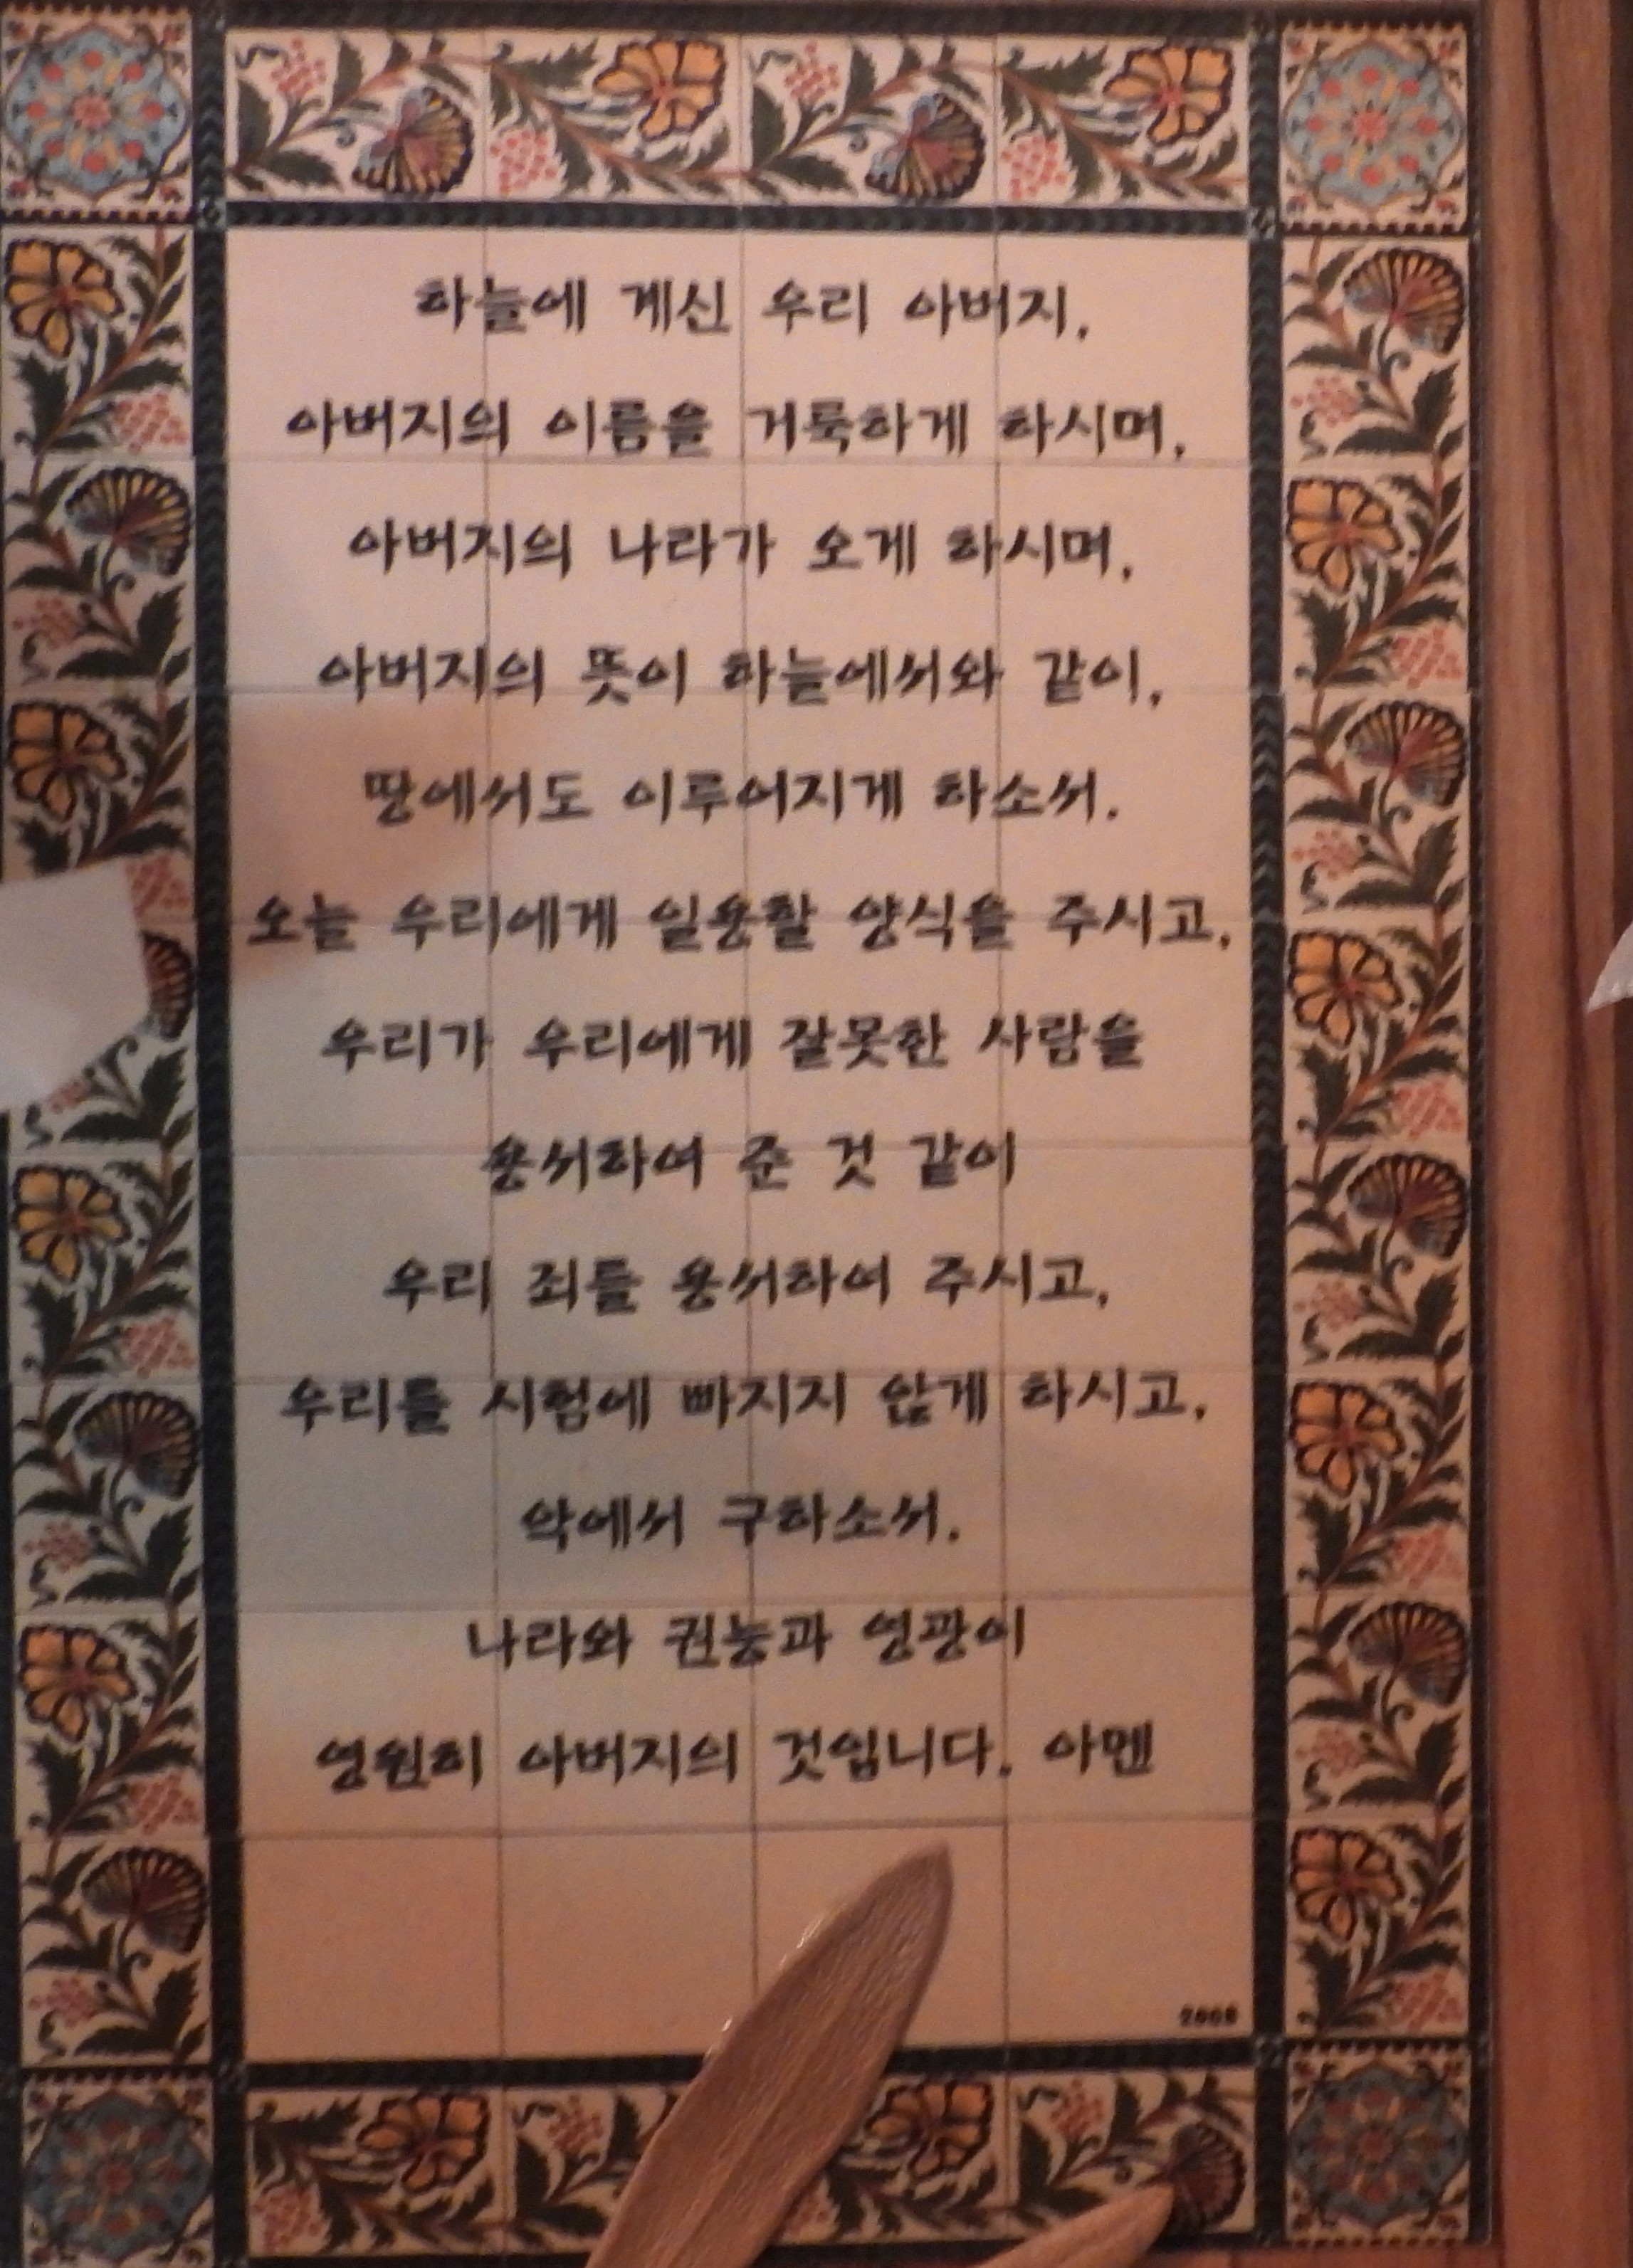 하늘에 계신 우리 아버지,
아버지의 이름을 거룩하게 하시며,
아버지의 나라가 오게 하시며,
아버지의 뜻이 하늘에서와 같이,
땅에서도 이루어지게 하소서.
오늘 우리에게 일용할 양식을 주시고,
우리가 우리에게 잘못한 사람을
용서하여 준 것 같이
우리 죄를 용서하여 주시고,
우리를 시험에 빠지지 않게 하시고,
악에서 구하소서.
나라와 권능과 영광이
영원히 아버지의 것입니다. 아멘